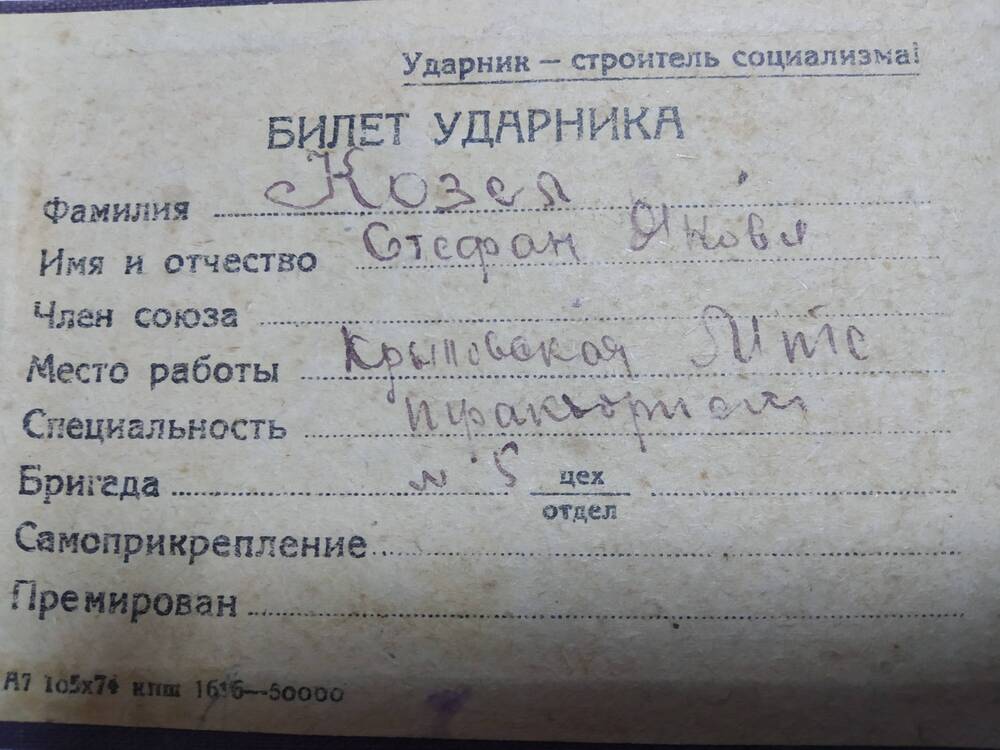 Ударник — строитель социализма!
БИЛЕТ УДАРНИКА
Фамилия Козел
Имя и отчество Стефан Яковл
Член союза
Место работы Крыловская МТС
Специальность тракторист
Бригада № 5 цех
отдел
Самоприкрепление
Премирован
А7 105х74 кпш 1616—50000